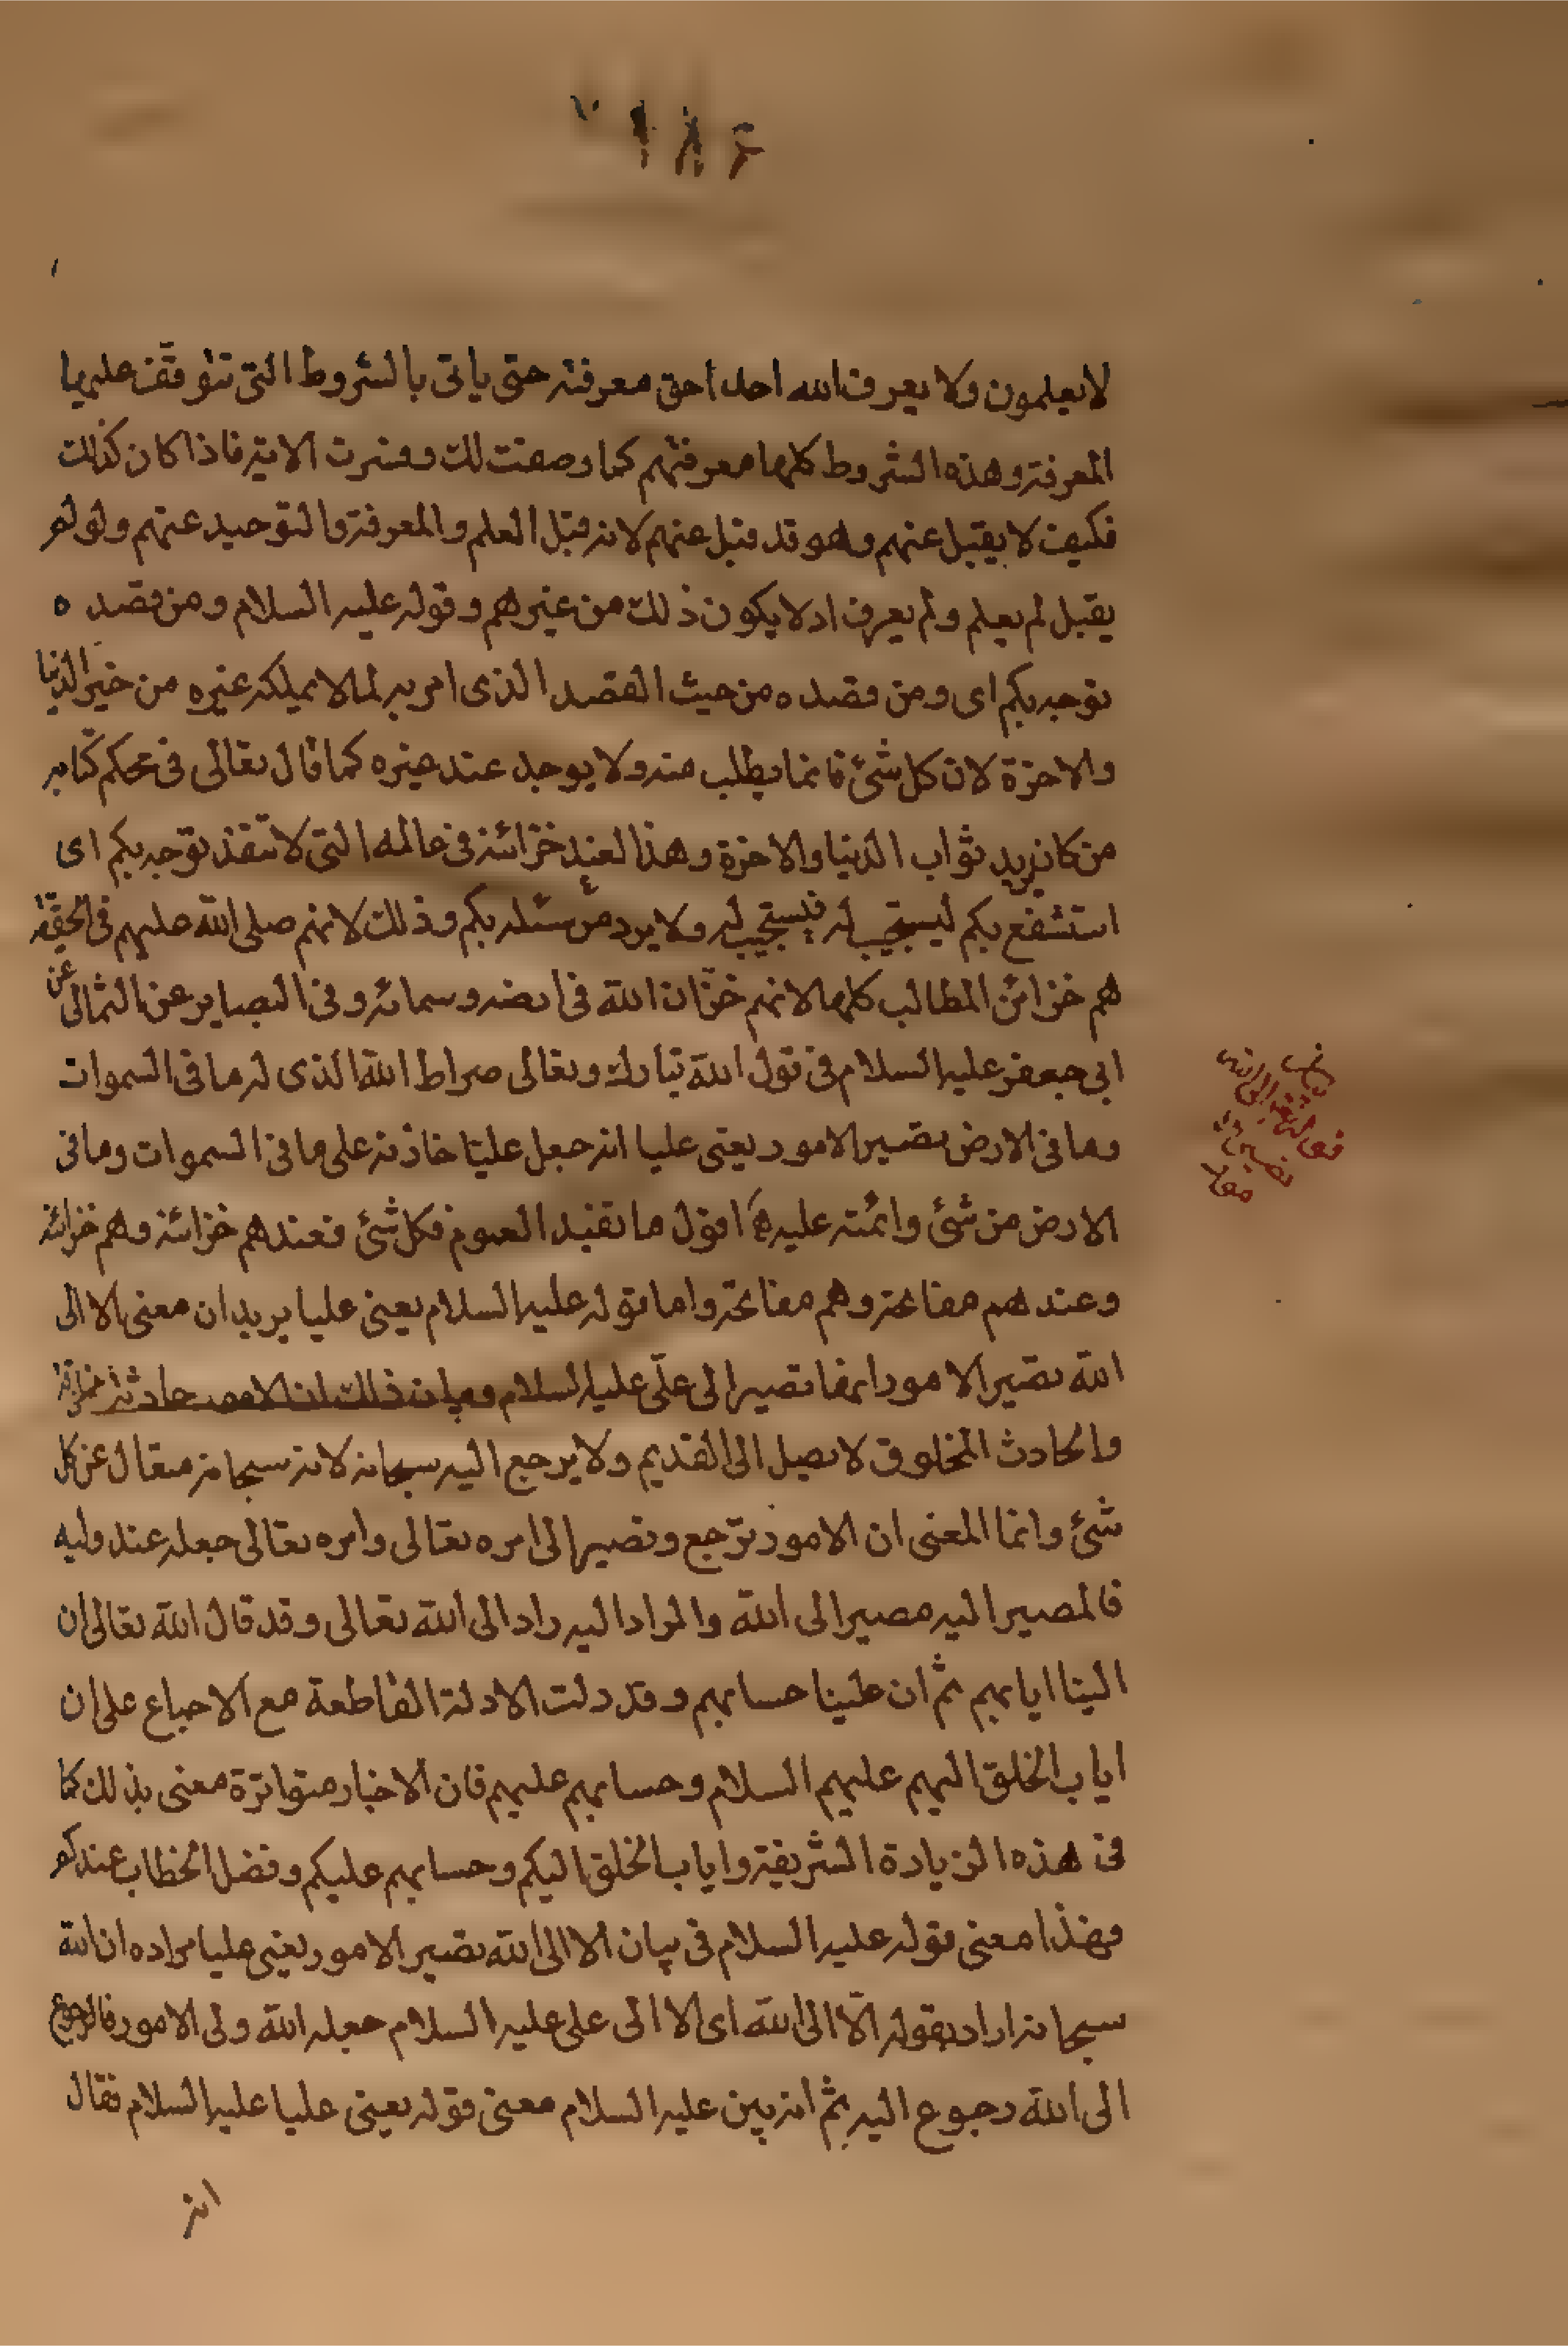 لا يعلمون ولا يعرف الله احد احق معرفته حتى ياتى بالشروط التى تتوقف عليها
المعرفة وهذه الشروط كلها معرفتهم كما وصفت لك وفسرت الاية فاذا كان كذلك
فكيف لا يقبل عنهم وهو قد قبل عنهم لانه قبل العلم والمعرفة والتوحيد عنهم ولو لم
يقبل لم يعلم ولم يعرف اد لا يكون ذلك من غيرهم وقوله عليه السلام ومن قصده
توجه بكم اى ومن قصده من حيث القصد الذى امر به لما لا يملكه غيره من خير الدنيا
والاخرة لان كل شئ فانما يطلب منه ولا يوجد عند غيره كما قال تعالى فى محكم كتابه
من كان يريد ثواب الدنيا والاخرة وهذا لعند خزائنه فى عالمه التى لا تنفذ توجه بكم اى
استشفع بكم ليستجيب له فيستجيب له ولا يرد من سئله بكم وذلك لانهم صلى الله عليهم فى الحقيقة
هم خزائن المطالب كلها لانهم خزّان الله فى ارضه وسمائه وفى البصاير عن الثمالى عن
ابى جعفر عليه السلام فى قول الله تبارك وتعالى صراط الله الذى له ما فى السموات
وما فى الارض تصير الامور يعنى عليا انه جعل عليّا خازنه على ما فى السموات وما فى
الارض من شئ وائمنه عليه اقول ما تفيد العموم فكل شئ فعندهم خزائنه وهم خزائنه
وعندهم مفاتحه وهم مفاتحه واما قوله عليه السلام يعنى عليا يريد ان معنى الا الى
الله تصير الامور انها تصير الى علّى عليه السلام وبيان ذلك ان الامور حادثة مخلوقة
والحادث المخلوق لا يصل الى القديم ولا يرجع اليه سبحانه لانه سبحانه متعال عن كل
شئ وانما المعنى ان الامور ترجع وتصير الى امره تعالى وامره تعالى جعله عند وليه
فالمصير اليه مصير الى الله والراد اليه راد الى الله تعالى وقد قال الله تعالى ان
الينا ايابهم ثم ان علينا حسابهم وقد دلت الادلة القاطعة مع الاجماع على ان
اياب الخلق اليهم عليهم السلام وحسابهم عليهم فان الاخبار متواترة معنى بذلك كما
فى هذه الزيادة الشريفة واياب الخلق اليكم وحسابهم عليكم وفصل الخطاب عندكم
فهذا معنى قوله عليه السلام فى بيان الا الى الله تصير الامور يعنى عليا مراده ان الله
سبحانه اراد بقوله الّا الى الله اى الا الى على عليه السلام جعله الله ولى الامور فالرجوع
الى الله رجوع اليه ثم انه بين عليه السلام معنى قوله يعنى عليا عليه السلام فقال
انه